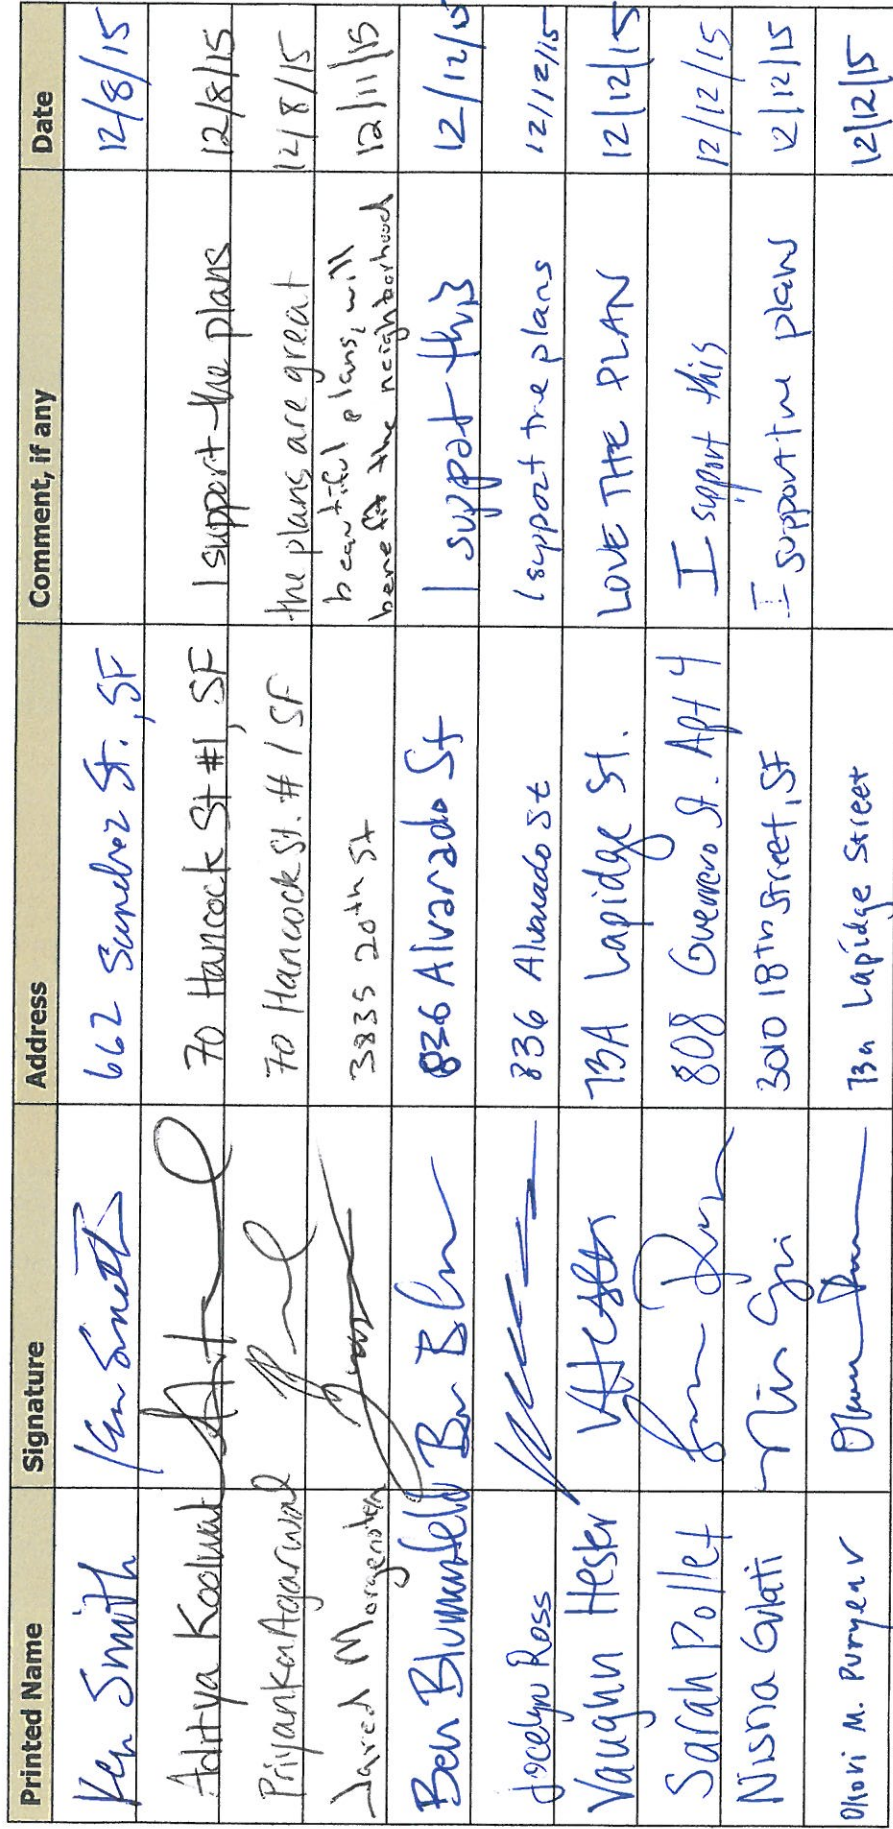 Printed Name Signature Address Comment, if any Date
Ken Smith Ken Smith 662 Sanchez St., SF 12/8/15
Aditya Koolwal 70 Hancock St #1, SF I support the plans 12/8/15
Priyanka Agarwal 70 Hancock St. #1 SF the plans are great 12/8/15
Jared Morgenstern 3835 20th St beautiful plans, will
benefit the neighborhood 12/11/15
Ben Blumenfeld Ben Bl 836 Alvarado St I support this 12/12/15
Jocelyn Ross 836 Alvarado St I support the plans 12/12/15
Vaughn Hester VHester 73A Lapidge St. LOVE THE PLAN 12/12/15
Sarah Pollet 808 Guerrero St. Apt 4 I support this 12/12/15
Nisha Gulati 3010 18th Street, SF I support the plans 12/12/15
M. Puryear 73a Lapidge Street 12/12/15